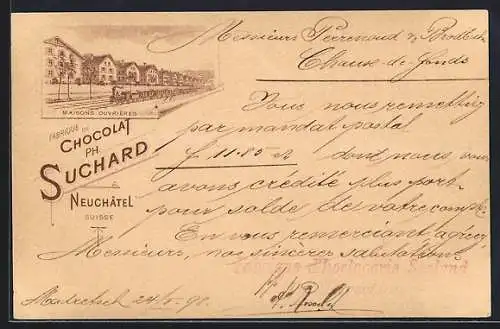 MAISONS OUVRIÈRES
FABRIQUE DE
CHOCOLAT
PH.
SUCHARD
À
NEUCHÂTEL
SUISSE
Messieurs Perrenoud & Brodbeck
Chaux-de-fonds
Vous nous remettez
par mandat postal
f. 11.85 dont nous vous
avons crédité plus port
pour solde de votre compte
En vous remerciant agréez
Messieurs, nos sincères salutations